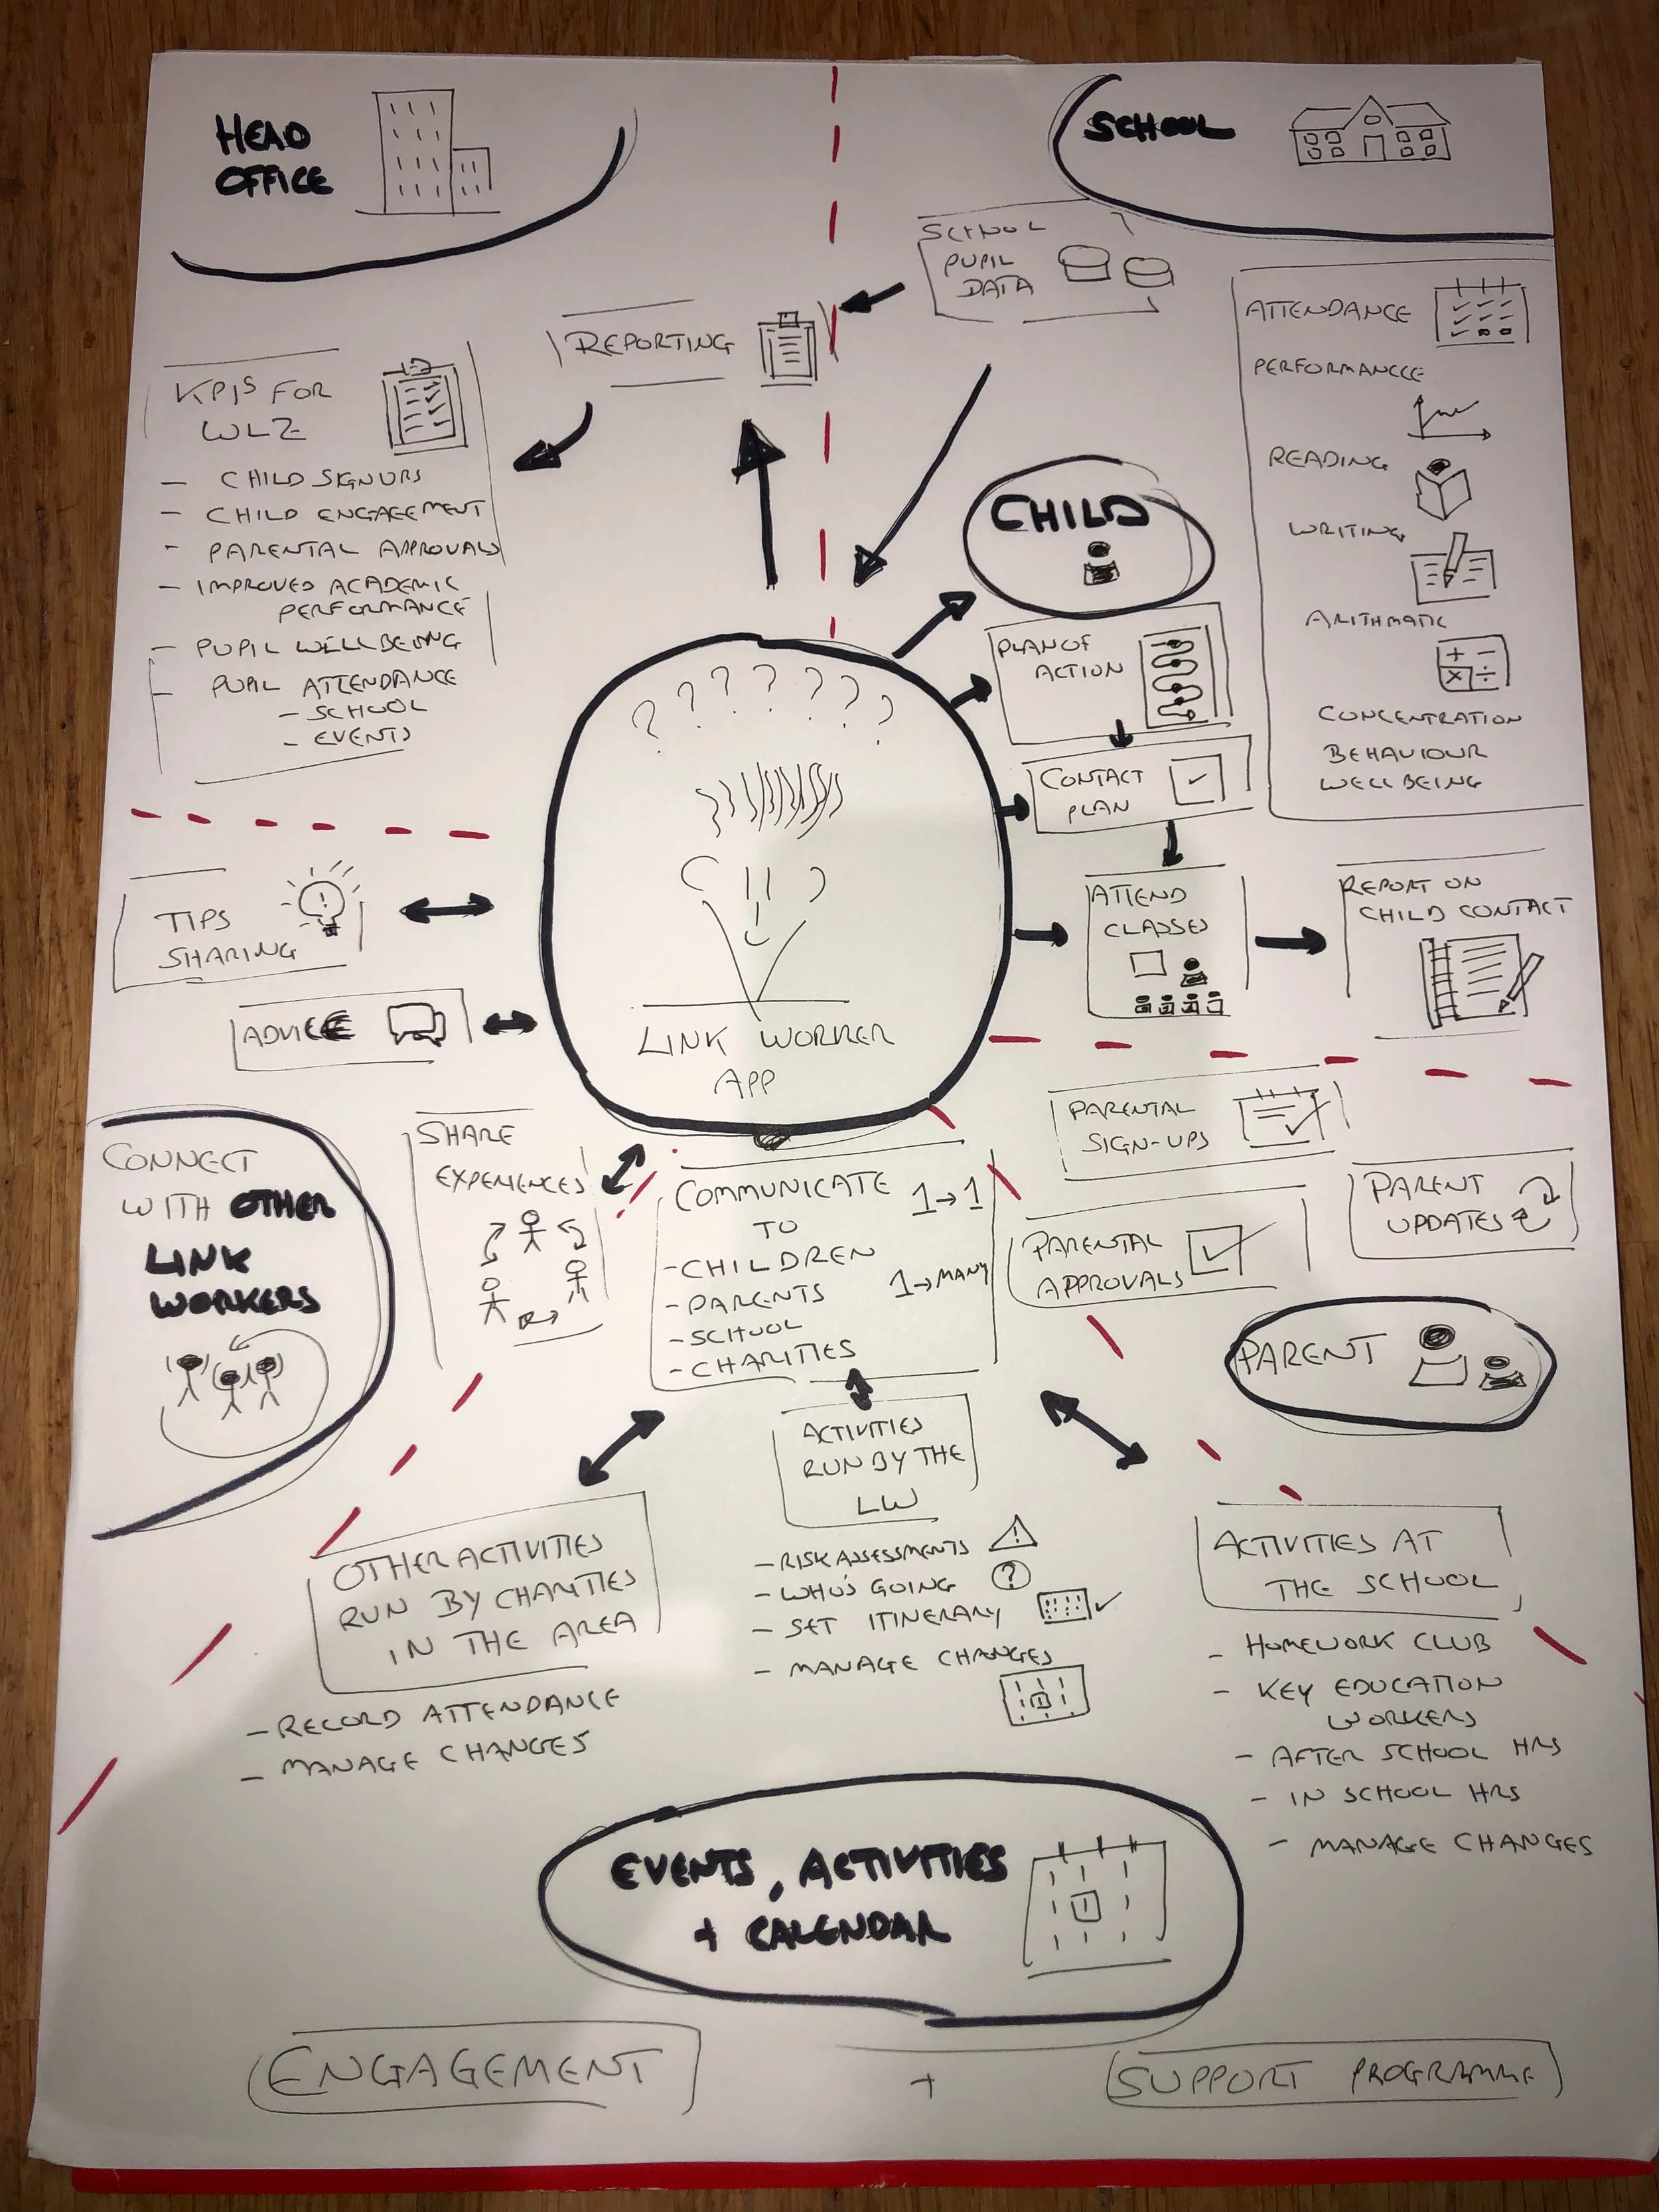 HEAD
OFFICE
SCHOOL
SCHOOL
PUPIL
DATA
REPORTING
KPIS FOR
WLZ
- CHILD SIGNUPS
- CHILD ENGAGEMENT
- PARENTAL APPROVALS
- IMPROVED ACADEMIC
PERFORMANCE
- PUPIL WELLBEING
- PUPIL ATTENDANCE
- SCHOOL
- EVENTS
ATTENDANCE
PERFORMANCCE
READING
WRITING
ARITHMATIC
+ -
× ÷
CONCENTRATION
BEHAVIOUR
WELLBEING
CHILD
PLAN OF
ACTION
CONTACT
PLAN
ATTEND
CLASSES
REPORT ON
CHILD CONTACT
? ? ? ? ? ? ?
LINK WORKER
APP
TIPS
SHARING
ADVICE
CONNECT
WITH OTHER
LINK
WORKERS
SHARE
EXPERIENCES
COMMUNICATE 1→1
TO
- CHILDREN
- PARENTS 1→MANY
- SCHOOL
- CHARITIES
PARENTAL
SIGN-UPS
PARENT
UPDATES
PARENTAL
APPROVALS
PARENT
OTHER ACTIVITIES
RUN BY CHARITIES
IN THE AREA
- RECORD ATTENDANCE
- MANAGE CHANGES
ACTIVITIES
RUN BY THE
LW
- RISK ASSESSMENTS !
- WHO'S GOING ?
- SET ITINERARY
- MANAGE CHANGES
ACTIVITIES AT
THE SCHOOL
- HOMEWORK CLUB
- KEY EDUCATION
WORKERS
- AFTER SCHOOL HRS
- IN SCHOOL HRS
- MANAGE CHANGES
EVENTS, ACTIVITIES
+ CALENDAR
ENGAGEMENT + SUPPORT PROGRAMME